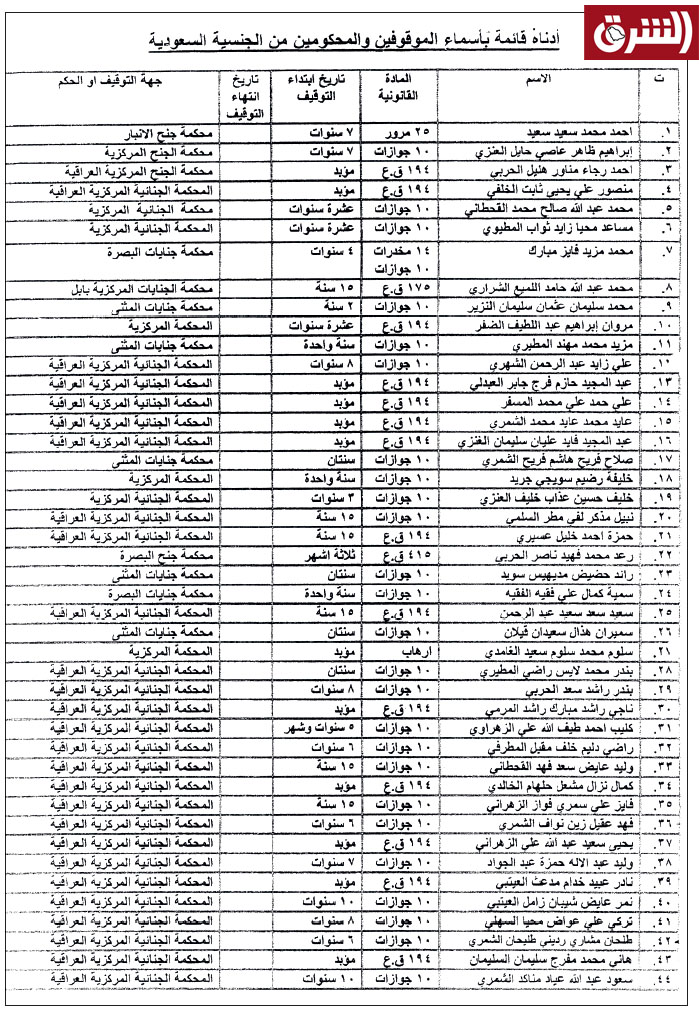 الشرق
أدناه قائمة بأسماء الموقوفين والمحكومين من الجنسية السعودية
ت الاسم المادة القانونية تاريخ ابتداء التوقيف تاريخ انتهاء التوقيف جهة التوقيف او الحكم
١. احمد محمد سعيد سعيد ٢٥ مرور ٧ سنوات محكمة جنح الانبار
٢. إبراهيم ظاهر عاصي حايل العنزي ١٠ جوازات ٧ سنوات محكمة الجنح المركزية
٣. احمد رجاء مناور هليل الحربي ١٩٤ ق.ع مؤبد محكمة الجنح المركزية العراقية
٤. منصور علي يحيى ثابت الخلفي ١٩٤ ق.ع مؤبد المحكمة الجنائية المركزية العراقية
٥. محمد عبد الله صالح محمد القحطاني ١٠ جوازات عشرة سنوات محكمة الجنائية المركزية
٦. مساعد محيا زايد ثواب المطيوي ١٠ جوازات عشرة سنوات المحكمة الجنائية المركزية
٧. محمد مزيد فايز مبارك ١٤ مخدرات ٤ سنوات محكمة جنايات البصرة
١٠ جوازات
٨. محمد عبد الله حامد اللميع الشراري ١٧٥ ق.ع ١٥ سنة محكمة الجنايات المركزية بابل
٩. محمد سليمان عثمان سليمان النزير ١٠ جوازات ٢ سنة محكمة جنايات المثنى
١٠. مروان إبراهيم عبد اللطيف الضفر ١٩٤ ق.ع عشرة سنوات المحكمة المركزية
١١. مزيد محمد مهند المطيري ١٠ جوازات سنة واحدة محكمة جنايات المثنى
علي زايد عبد الرحمن الشهري ١٠ جوازات ٨ سنوات المحكمة الجنائية المركزية العراقية
١٣. عبد المجيد حازم فرج جابر العبدلي ١٩٤ ق.ع مؤبد المحكمة الجنائية المركزية العراقية
١٤. علي حمد علي محمد المسفر ١٩٤ ق.ع مؤبد المحكمة الجنائية المركزية العراقية
١٥. عايد محمد عايد محمد الشمري ١٩٤ ق.ع مؤبد المحكمة الجنائية المركزية العراقية
١٦. عبد المجيد فايد عليان سليمان الغنزي ١٩٤ ق.ع مؤبد المحكمة الجنائية المركزية العراقية
١٧. صلاح فريح هاشم فريح الشمري ١٠ جوازات سنتان محكمة جنايات المثنى
١٨. خليفة رضيم سويجي جريد ١٠ جوازات سنة واحدة المحكمة المركزية
١٩. خليف حسين عذاب خليف العنزي ١٠ جوازات ٣ سنوات المحكمة الجنائية المركزية
٢٠. نبيل مذكر لفي مطر السلمي ١٠ جوازات ١٥ سنة المحكمة الجنائية المركزية العراقية
٢١. حمزة احمد خليل عسيري ١٩٤ ق.ع ١٥ سنة المحكمة الجنائية المركزية العراقية
٢٢. رعد محمد فهيد ناصر الحربي ٤١٥ ق.ع ثلاثة اشهر محكمة جنح البصرة
٢٣. رائد حضيض مديهيس سويد ١٠ جوازات سنتان محكمة جنايات المثنى
٢٤. سمية كمال علي فقيه الفقيه ١٠ جوازات سنة واحدة محكمة جنايات البصرة
٢٥. سعيد سعد سعيد عبد الرحمن ١٩٤ ق.ع ١٥ سنة المحكمة الجنائية المركزية العراقية
٢٦. سميران هذال سعيدان فيلان ١٠ جوازات سنتان محكمة جنايات المثنى
سلوم محمد سلوم سعيد الغامدي ارهاب مؤبد المحكمة المركزية
٢٨. بندر محمد لايس راضي المطيري ١٠ جوازات سنتان المحكمة الجنائية المركزية العراقية
٢٩. بندر راشد سعد الحربي ١٠ جوازات ٨ سنوات المحكمة الجنائية المركزية العراقية
٣٠. ناجي راشد مبارك راشد المرمي ١٩٤ ق.ع مؤبد المحكمة الجنائية المركزية العراقية
٣١. كليب احمد طيف الله علي الزهراوي ١٠ جوازات ٥ سنوات وشهر المحكمة الجنائية المركزية العراقية
٣٢. راضي دليم خلف مقبل المطرفي ١٠ جوازات ٦ سنوات المحكمة الجنائية المركزية العراقية
٣٣. وليد عايض سعد فهد القحطاني ١٠ جوازات ١٥ سنة المحكمة الجنائية المركزية العراقية
٣٤. كمال نزال مشعل حلهام الخالدي ١٩٤ ق.ع مؤبد المحكمة الجنائية المركزية العراقية
٣٥. فايز علي سمري فواز الزهراني ١٠ جوازات ١٥ سنة المحكمة الجنائية المركزية العراقية
٣٦. فهد عقيل زين نواف الشمري ١٠ جوازات ٦ سنوات المحكمة الجنائية المركزية العراقية
٣٧. يحيى سعيد عبد الله علي الزهراني ١٩٤ ق.ع مؤبد المحكمة الجنائية المركزية العراقية
٣٨. وليد عبد الاله حمزة عبد الجواد ١٠ جوازات ٧ سنوات المحكمة الجنائية المركزية العراقية
٣٩. نادر عبيد خدام مدعث العيتبي ١٩٤ ق.ع مؤبد المحكمة الجنائية المركزية العراقية
٤٠. نمر عايض شيبان زامل العيتبي ١٠ جوازات ١٠ سنوات المحكمة الجنائية المركزية العراقية
٤١. تركي علي عواض محيا السهلي ١٠ جوازات ٨ سنوات المحكمة الجنائية المركزية العراقية
٤٢. طلحان مشاري رديني طلبحان الشمري ١٠ جوازات ٦ سنوات المحكمة الجنائية المركزية العراقية
٤٣. هاني محمد مفرج سليمان السليمان ١٩٤ ق.ع مؤبد المحكمة الجنائية المركزية العراقية
٤٤. سعود عبد الله عياد مناكد الشمري ١٠ جوازات ١٠ سنوات المحكمة الجنائية المركزية العراقية